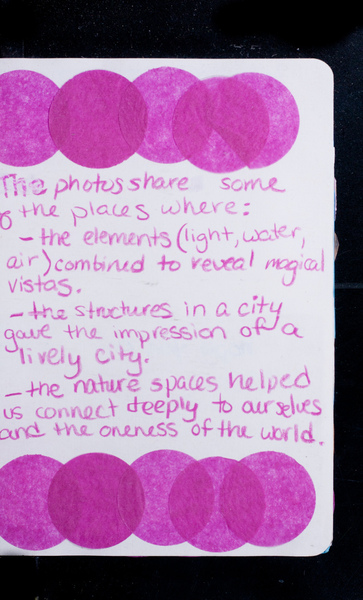 The photos share some
of the places where:
- the elements (light, water,
air) combined to reveal magical
vistas.
- the structures in a city
gave the impression of a
lively city.
- the nature spaces helped
us connect deeply to ourselves
and the oneness of the world.